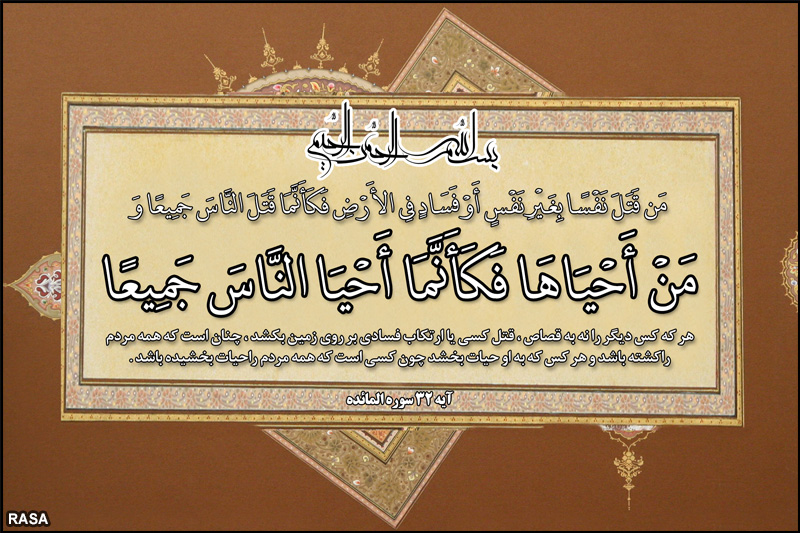 بسم الله الرحمن الرحیم
مَن قَتَلَ نَفْسًا بِغَيْرِ نَفْسٍ أَوْ فَسَادٍ فِي الأَرْضِ فَكَأَنَّمَا قَتَلَ النَّاسَ جَمِيعًا وَ
مَنْ أَحْيَاهَا فَكَأَنَّمَا أَحْيَا النَّاسَ جَمِيعًا
هر که کس دیگر را نه به قصاص ، قتل کسی یا ارتکاب فسادی بر روی زمین بکشد ، چنان است که همه مردم
راکشته باشد و هر کس که به او حیات بخشد چون کسی است که همه مردم راحیات بخشیده باشد .
آیه ۳۲ سوره المائده
RASA